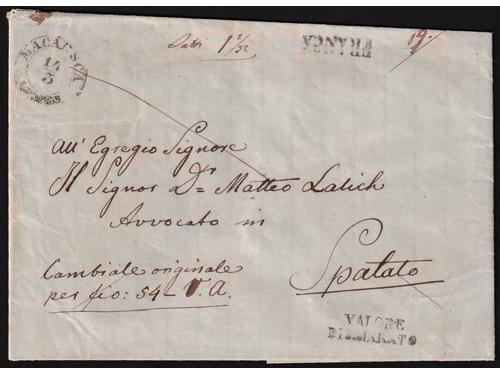 MACARSCA
14
3
1 1/32
FRANCA
19.
All' Egregio Signore
Il Signor Dr. Matteo Lalich
Avvocato in
Spalato
Cambiale originale
per fio: 54 - V. A.
VALORE
DICHIARATO